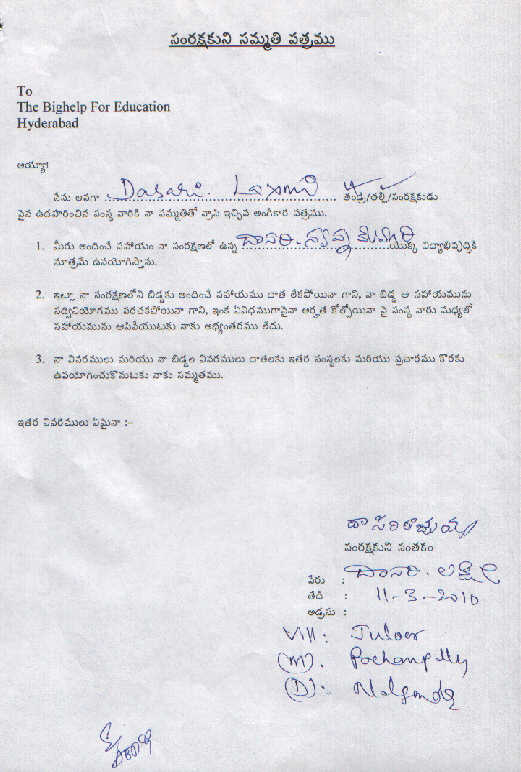 సంరక్షకుని సమ్మతి పత్రము
To
The Bighelp For Education
Hyderabad
అయ్యా
నేను అనగా Dasari. Laxmi తండ్రి/తల్లి/సంరక్షకుడు
పైన ఉదహరించిన సంస్థ వారికి నా సమ్మతితో వ్రాసి ఇచ్చిన అంగీకార పత్రము.
1. మీరు అందించే సహాయం నా సంరక్షణలో ఉన్న దాసరి యొక్క విద్యాభివృద్ధికి
మాత్రమే ఉపయోగిస్తాను.
2. ఇట్లా నా సంరక్షణలోని బిడ్డకు అందించే సహాయము దాత లేకపోయినా గాని, నా బిడ్డ ఆ సహాయమును
సద్వినియోగము పరచకపోయినా గాని, ఇంకే విధముగానైనా అర్హత కోల్పోయినా పై సంస్థ వారు మధ్యలో
సహాయమును ఆపివేయుటకు నాకు అభ్యంతరము లేదు.
3. నా వివరములు మరియు నా బిడ్డల వివరములు దాతలకు ఇతర సంస్థలకు మరియు ప్రచారము కొరకు
ఉపయోగించుకొనుటకు నాకు సమ్మతము.
ఇతర వివరములు ఏమైనా :-
సంరక్షకుని సంతకం
పేరు : దాసరి. లక్ష్మి
తేది : 11-3-2010
అడ్రసు :
Vill: Juloor
(M). Pochampally
(D): Nalgonda